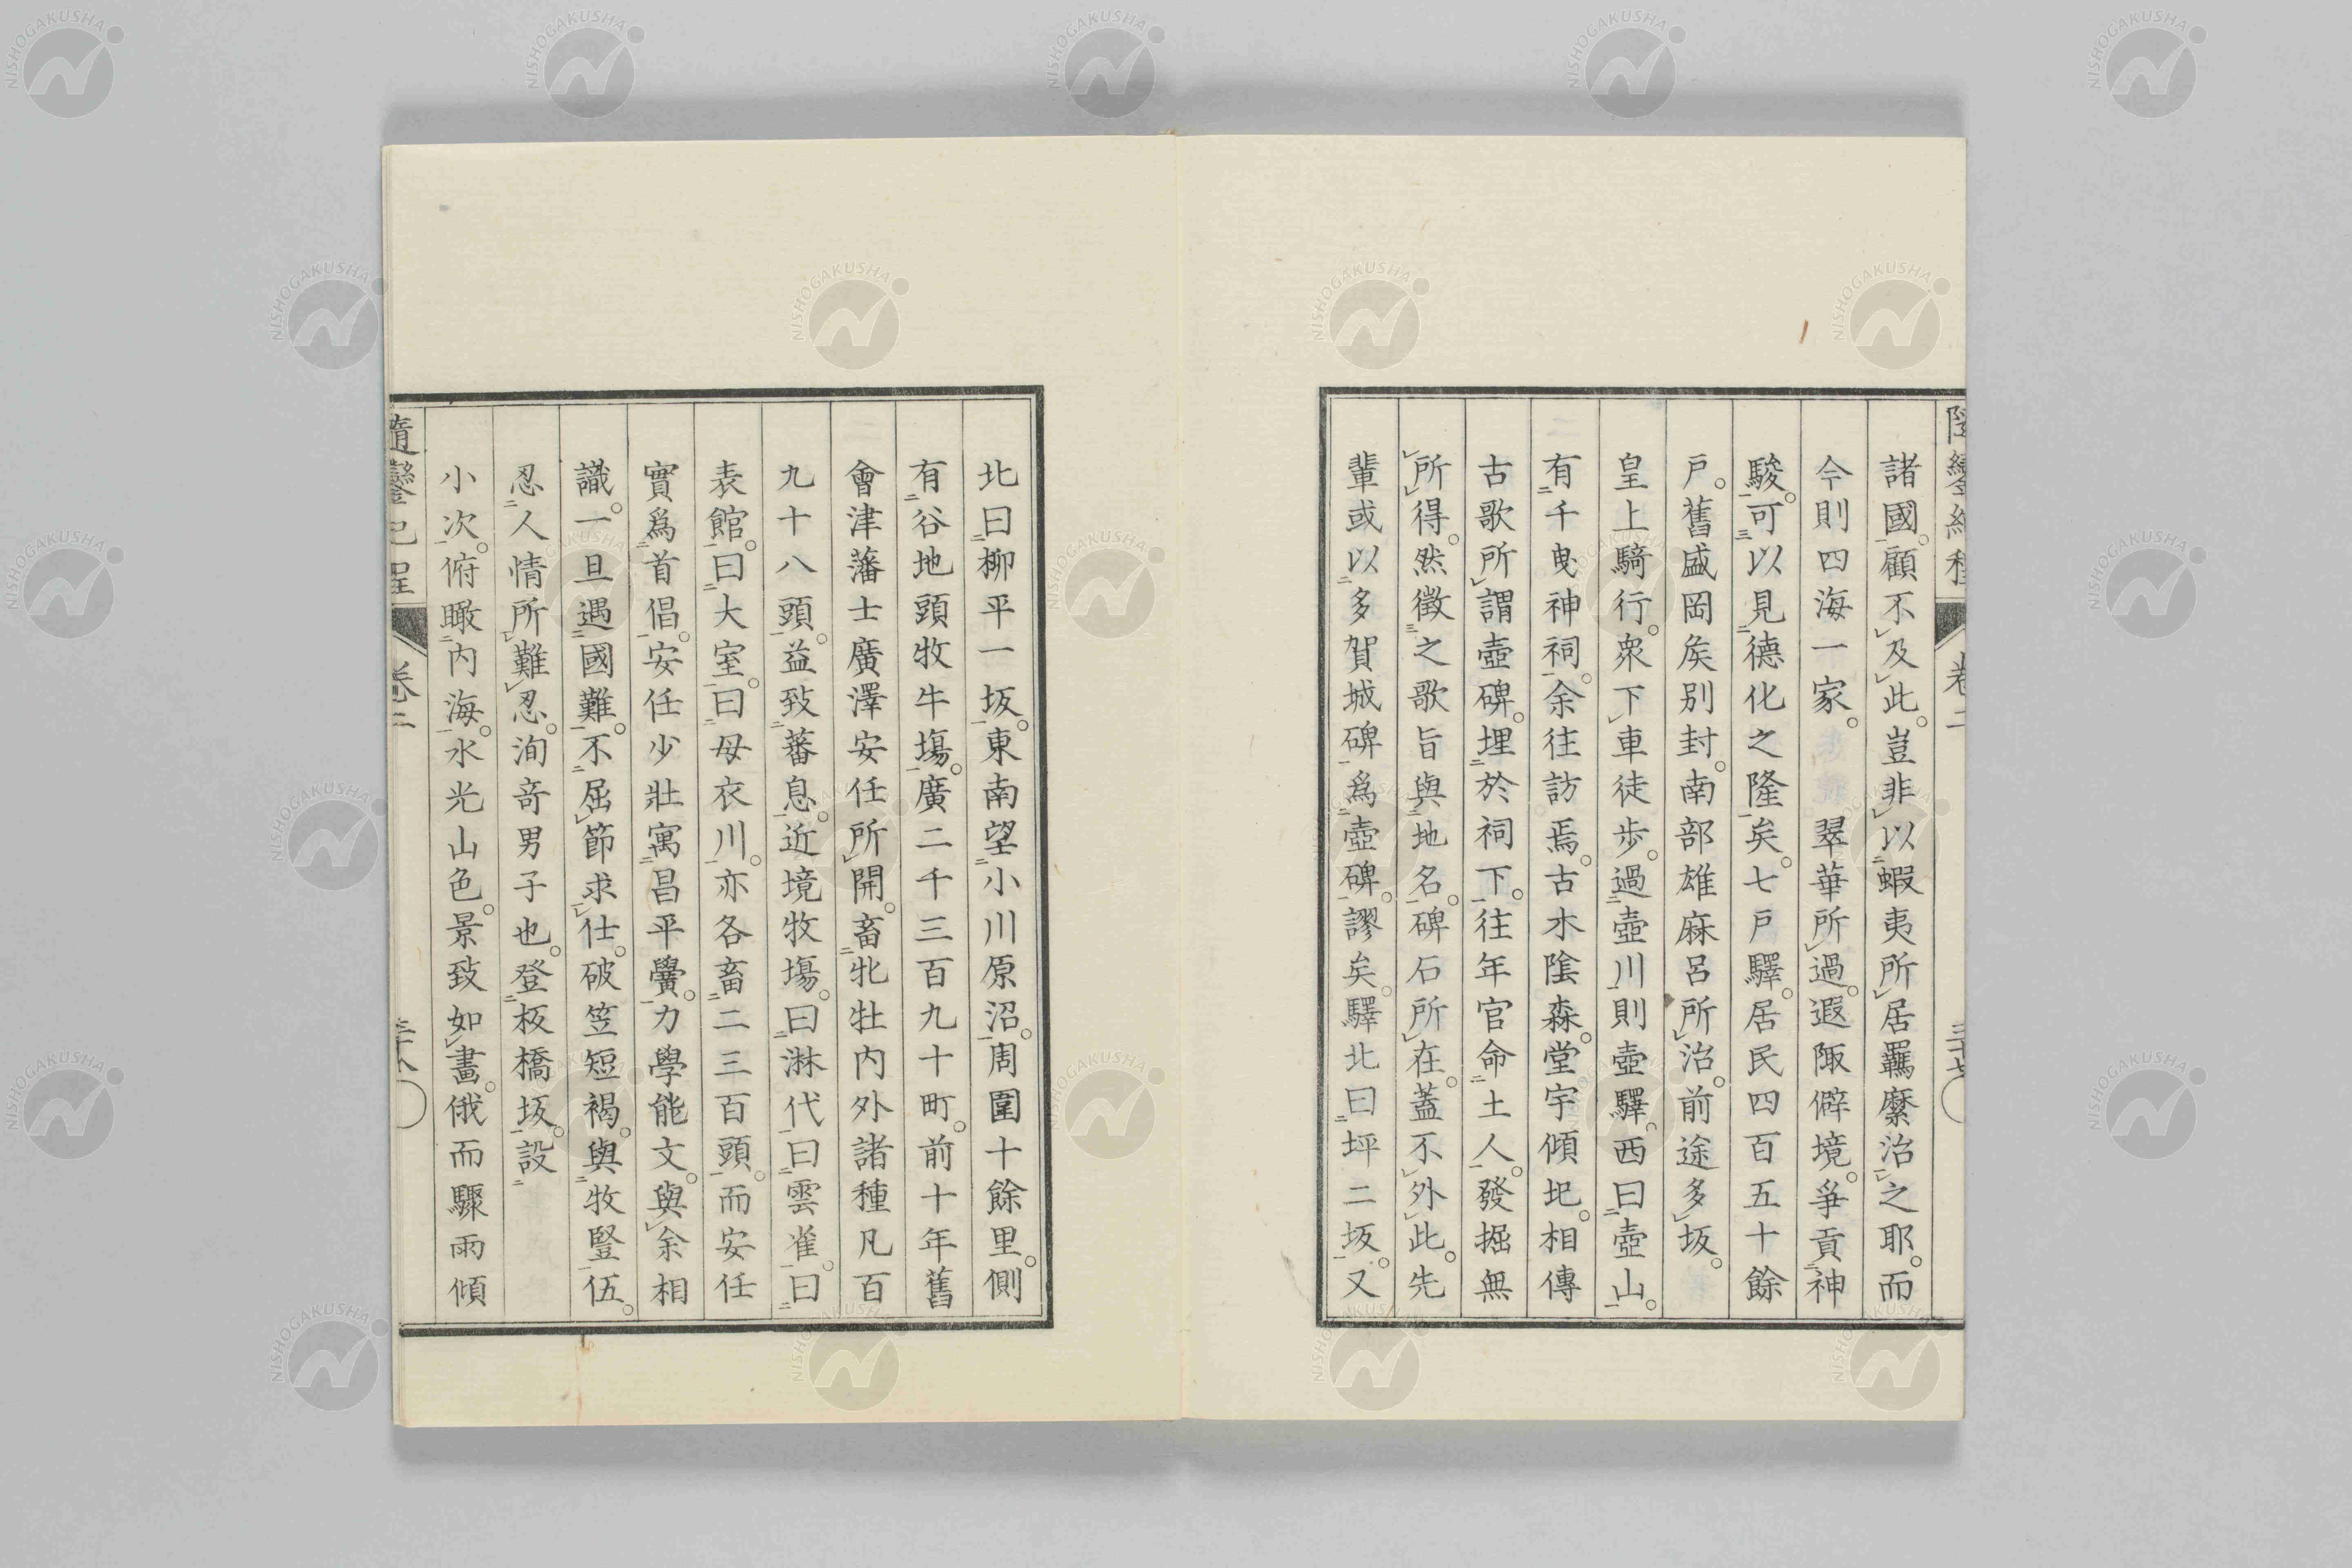 諸國。顧不及此。豈非以蝦夷所居羈縻治之耶。而
今則四海一家。翠華所過。遐陬僻境。爭貢神
駿。可以見德化之隆矣。七戶驛。居民四百五十餘
戶。舊盛岡矦別封。南部雄麻呂所治。前途多坂。
皇上騎行。衆下車徒步。過壺川則壺驛。西曰壺山。
有千曳神祠。余往訪焉。古木陰森。堂宇傾圮。相傳
古歌所謂壺碑。埋於祠下。往年官命土人。發掘無
所得。然徵之歌旨與地名。碑石所在。蓋不外此。先
輩或以多賀城碑爲壺碑。謬矣。驛北曰坪二坂。又
北曰柳平一坂。東南望小川原沼。周圍十餘里。側
有谷地頭牧牛場。廣二千三百九十町。前十年舊
會津藩士廣澤安任所開。畜牝牡內外諸種凡百
九十八頭。益致蕃息。近境牧場。曰淋代曰雲雀。曰
表館。曰大室。曰母衣川。亦各畜二三百頭。而安任
實爲首倡。安任少壯寓昌平黌。力學能文。與余相
識。一旦遇國難。不屈節求仕。破笠短褐。與牧豎伍。
忍人情所難忍。洵奇男子也。登板橋坂。設
小次。俯瞰內海。水光山色。景致如畫。俄而驟雨傾
隨鑾紀程
卷二
三十七
隨鑾紀程
卷二
三十八
NISHOGAKUSHA